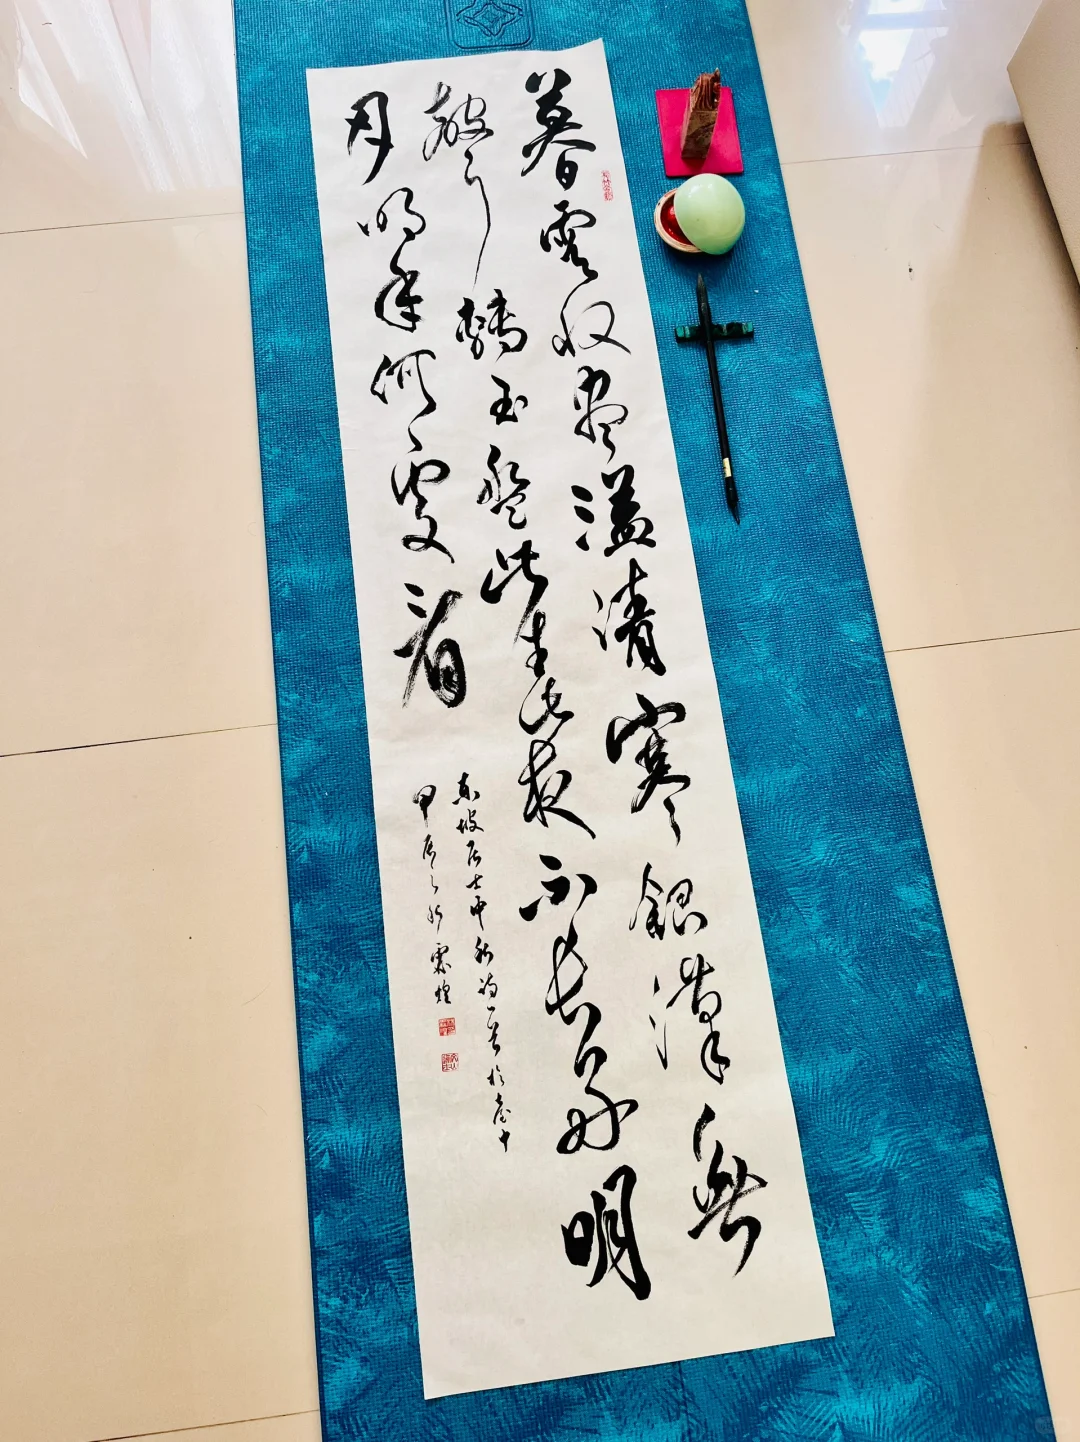 暮雲收盡溢清寒銀漢無
聲轉玉盤此生此夜不長好明
月明年何處看
東坡居士中秋詩一首於臺中
甲辰之秋煌